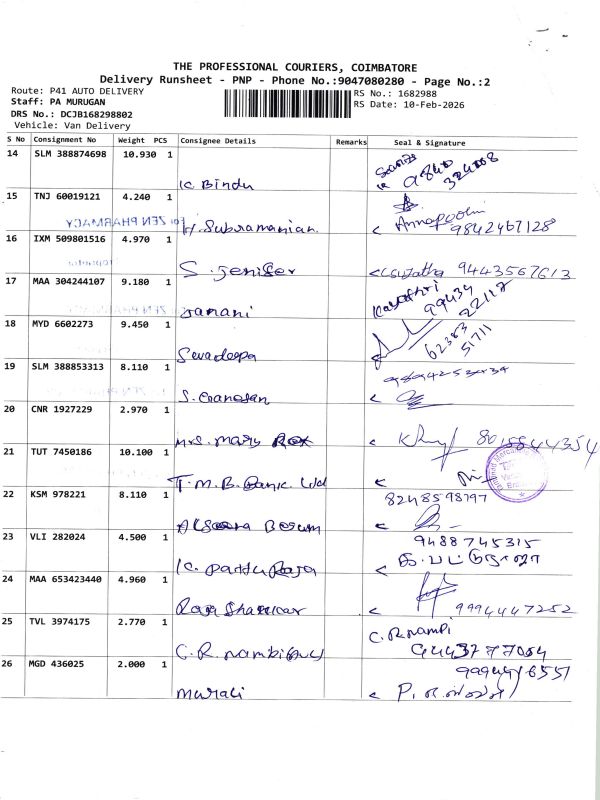 THE PROFESSIONAL COURIERS, COIMBATORE
Delivery Runsheet - PNP - Phone No.:9047080280 - Page No.:2
Route: P41 AUTO DELIVERY
Staff: PA MURUGAN
DRS No.: DCJB168298802
Vehicle: Van Delivery
RS No.: 1682988
RS Date: 10-Feb-2026
S No Consignment No Weight PCS Consignee Details Remarks Seal & Signature
14 SLM 388874698 10.930 1
K. Bindu
15 TNJ 60019121 4.240 1
For ZEN PHARMACY
H. Subramanian
Annapoorni
9842467128
16 IXM 509801516 4.970 1
S. Jenifer
Sujatha 9443567613
17 MAA 304244107 9.180 1
Janani
Kayathri
99434
22117
18 MYD 6602273 9.450 1
Sivadeepa
62383
51711
19 SLM 388853313 8.110 1
S. Ganesan
9894253439
20 CNR 1927229 2.970 1
Mrs. Mary Rex
8015844354
21 TUT 7450186 10.100 1
T.M.B. Bank. Ltd
22 KSM 978221 8.110 1
8248598797
23 VLI 282024 4.500 1
K. Pattu Raja
9488745315
24 MAA 653423440 4.960 1
Raja Shankar
9994447252
25 TVL 3974175 2.770 1
C. R. Nambi
C. R. nambi
9443777054
26 MGD 436025 2.000 1
Murali
9994416551